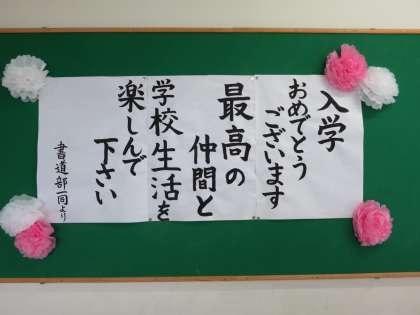 入学
おめでとう
ございます
最高の
仲間と
学校生活を
楽しんで
下さい
書道部一同より